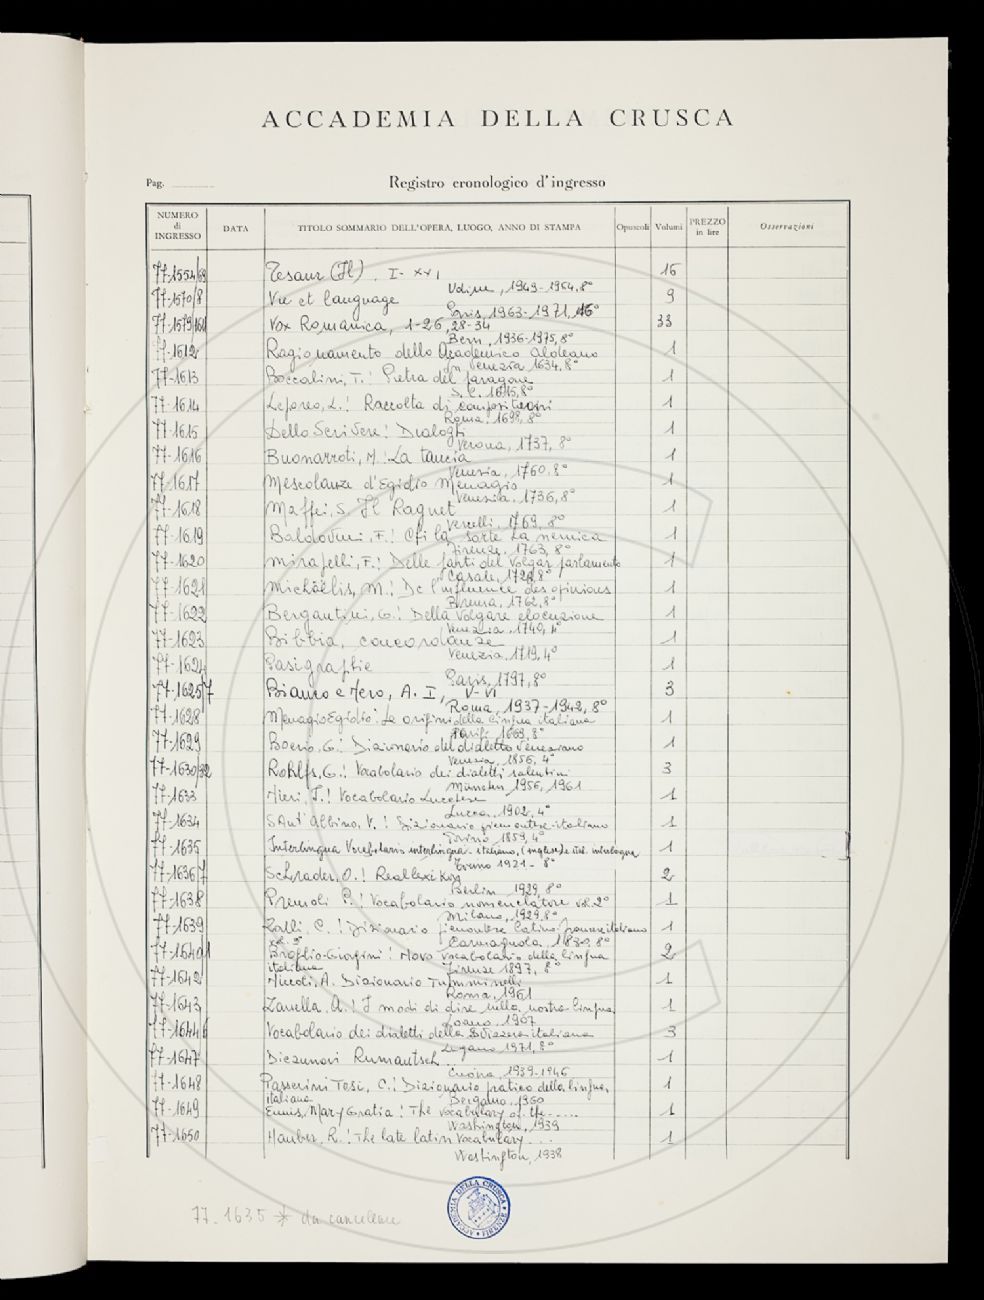 ACCADEMIA DELLA CRUSCA
Pag.
Registro cronologico d'ingresso
NUMERO di INGRESSO DATA TITOLO SOMMARIO DELL'OPERA, LUOGO, ANNO DI STAMPA Opuscoli Volumi PREZZO in lire Osservazioni
77-1554/69 Tesaur (Il). I-XVI 16
Udine, 1949-1964, 8°
77-1570/8 Vie et language 9
Paris, 1963-1971, 16°
77-1579/1611 Vox Romanica, 1-26, 28-34 33
Bern, 1936-1975, 8°
77-1612 Ragionamento dello Academico Aldeano 1
In Venezia 1634, 8°
77-1613 Boccalini, T.: Pietra del paragone 1
S. l. 1615, 8°
77-1614 Leporeo, L.: Raccolta di 1
Roma, 8°
77-1615 Dello Scrivere: Dialoghi 1
Verona, 1737, 8°
77-1616 Buonarroti, M.: La tancia 1
Venezia, 1760, 8°
77-1617 Mescolanza d'Egidio Menagio 1
Venezia, 1736, 8°
77-1618 Maffei, S. Il Raguet 1
1769, 8°
77-1619 Baldovini, F.: Chi la sorte ha nemica 1
Firenze, 1763, 8°
77-1620 F.: Delle fonti del volgar parlamento 1
Casale, 8°
77-1621 Michäelis, M.: De l'influence des opinions 1
Brema, 1762, 8°
77-1622 Bergantini, G.: Della volgare elocuzione 1
Venezia, 1740, 4°
77-1623 Bibbia, concordanze 1
Venezia, 1719, 4°
77-1624 Pasigraphie 1
Paris, 1797, 8°
77-1625/7 Bianco e Nero, A. I, V-VI 3
Roma, 1937-1942, 8°
77-1628 Menagio Egidio: Le origini della lingua italiana 1
Parigi 1669, 8°
77-1629 Boerio, G.: Dizionario del dialetto veneziano 1
Venezia, 1856, 4°
77-1630/32 Rohlfs, G.: Vocabolario dei dialetti salentini 3
München 1956, 1961
77-1633 Nieri, I.: Vocabolario Lucchese 1
Lucca, 1902, 4°
77-1634 Sant'Albino, V.: Dizionario piemontese-italiano 1
Torino, 1859, 4°
77-1635 Interlingua Vocabolario interlingua-italiano, (inglese)e ital. interlingua 1
Torino 1921- 8°
77-1636/7 Schrader, O.: Reallexikon 2
Berlin, 1929, 8°
77-1638 Premoli P.: Vocabolario nomenclatore vol. 2° 1
Milano, 1929, 8°
77-1639 Zalli, C.: Dizionario piemontese latino francese italiano 1
vol. 2° Carmagnola, 1830, 8°
77-1640/1 Broglio-Giorgini: Novo vocabolario della lingua 2
italiana Firenze 1897, 8°
77-1642 Niccoli, A. Dizionario Tumminelli 1
Roma, 1961
77-1643 Zanella, A.: I modi di dire nella nostra lingua, 1
1967
77-1644/6 Vocabolario dei dialetti della Svizzera italiana 3
Lugano 1971, 8°
77-1647 Dicziunari Rumantsch 1
1939-1946
77-1648 Passerini Tosi, C.: Dizionario pratico della lingua, 1
italiana Bergamo, 1960
77-1649 Ennis, Mary Gratia: The vocabulary of the..... 1
Washington, 1939
77-1650 Hauber, R.: The late latin vocabulary... 1
Washington, 1938
ACCADEMIA DELLA CRUSCA * FIRENZE *
77.1635 * da cancellare